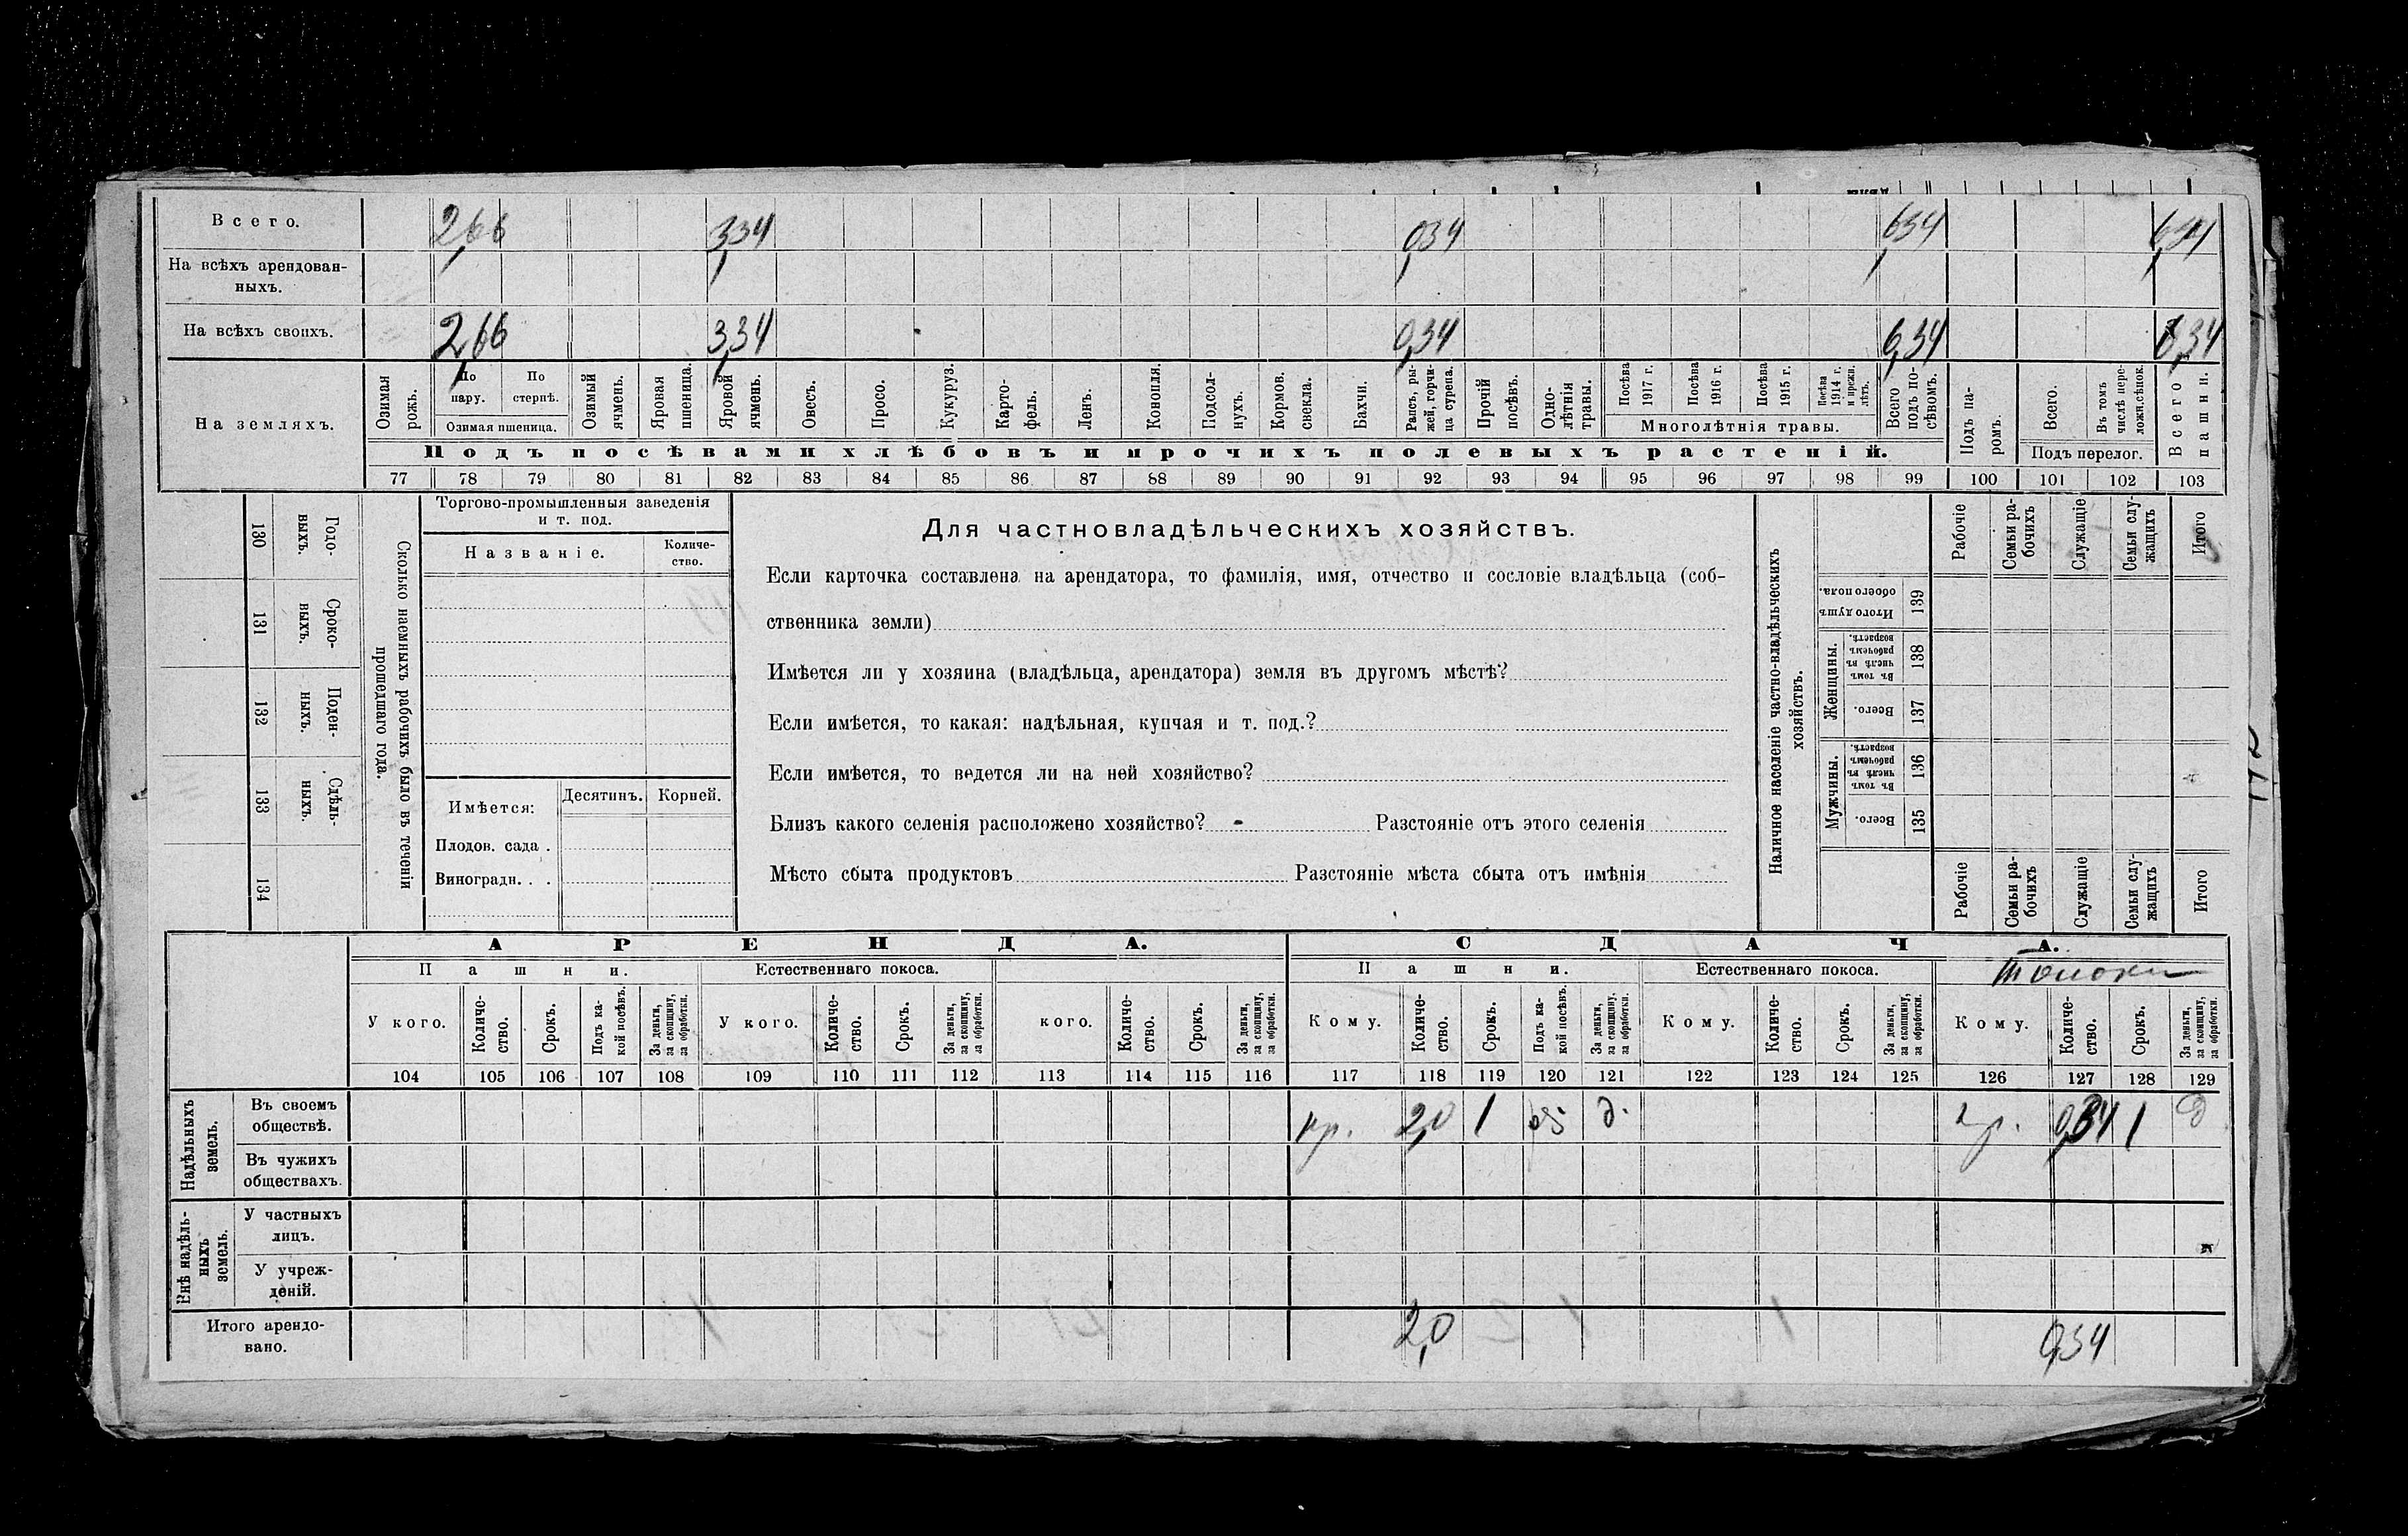 Всего. 2,66 3,34 0,34 6,34 6,34
На всѣхъ арендован-
ныхъ.
На всѣхъ своихъ. 2,66 3,34 0,34 6,34 6,34
На земляхъ.
Озимая рожь.
По пару.
По стернѣ.
Озимая пшеница.
Озимый ячмень.
Яровая пшеница.
Яровой ячмень.
Овесъ.
Просо.
Кукуруз.
Карто-
фель.
Ленъ.
Конопля.
Подсол-
нухъ.
Кормов.
свекла.
Бахчи.
Рапсъ, ры-
жей, горчи-
ца сурепа.
Прочій
посѣвъ.
Одно-
лѣтнія
травы.
Посѣва
1917 г.
Посѣва
1916 г.
Посѣва
1915 г.
Посѣва
1914 г.
и прежн.
лѣтъ.
Многолѣтнія травы.
Всего
подъ по-
сѣвомъ.
Подъ па-
ромъ.
Всего.
Въ томъ
числѣ пере-
ложн.сѣнок.
Подъ перелог.
Всего
пашни.
Подъ посѣвами хлѣбовъ и прочихъ полевыхъ растеній.
77 78 79 80 81 82 83 84 85 86 87 88 89 90 91 92 93 94 95 96 97 98 99 100 101 102 103
130 Годо-
ныхъ.
131 Сроко-
ныхъ.
132 Поден-
ныхъ.
133 Сдѣль-
ныхъ.
134
Сколько наемныхъ рабочихъ было въ теченіи
прошедшаго года.
Торгово-промышленныя заведенія
и т. под.
Названіе.
Количе-
ство.
Имѣется: Десятинъ. Корней.
Плодов. сада .
Виноградн. . .
Для частновладѣльческихъ хозяйствъ.
Если карточка составлена на арендатора, то фамилія, имя, отчество и сословіе владѣльца (соб-
ственника земли)
Имѣется ли у хозяина (владѣльца, арендатора) земля въ другомъ мѣстѣ?
Если имѣется, то какая: надѣльная, купчая и т. под.?
Если имѣется, то ведется ли на ней хозяйство?
Близъ какого селенія расположено хозяйство? - Разстояніе отъ этого селенія
Мѣсто сбыта продуктовъ Разстояніе мѣста сбыта отъ имѣнія
Наличное населеніе частно-владѣльческихъ
хозяйствъ.
Рабочіе
Семьи ра-
бочихъ
Служащіе
Семьи слу-
жащихъ
Итого
Итого душъ
обоего пола.
139
Женщины.
Въ томъ
числѣ въ
рабочемъ
возрастѣ.
138
Всего.
137
Мужчины.
Въ томъ
числѣ въ
рабочемъ
возрастѣ.
136
Всего.
135
Рабочіе
Семьи ра-
бочихъ
Служащіе
Семьи слу-
жащихъ
Итого
АРЕНДА. СДАЧА.
Пашни. Естественнаго покоса. Пашни. Естественнаго покоса. Толоки
У кого.
Количе-
ство.
Срокъ.
Подъ ка-
кой посѣвъ.
За деньги,
за скопщину,
за обработки.
У кого.
Количе-
ство.
Срокъ.
За деньги,
за скопщину,
за обработки.
кого.
Количе-
ство.
Срокъ.
За деньги,
за скопщину,
за обработки.
Кому.
Количе-
ство.
Срокъ.
Подъ ка-
кой посѣвъ.
За деньги,
за скопщину,
за обработки.
Кому.
Количе-
ство.
Срокъ.
За деньги,
за скопщину,
за обработки.
Кому.
Количе-
ство.
Срокъ.
За деньги,
за скопщину,
за обработки.
104 105 106 107 108 109 110 111 112 113 114 115 116 117 118 119 120 121 122 123 124 125 126 127 128 129
Надѣльныхъ
земель.
Въ своемъ
обществѣ.
кр. 2,0 1 оз д. кр. 0,34 1 д
Въ чужихъ
обществахъ.
Внѣ надѣль-
ныхъ
земель.
У частныхъ
лицъ.
У учреж-
деній.
Итого арендо-
вано.
2,0 0,34